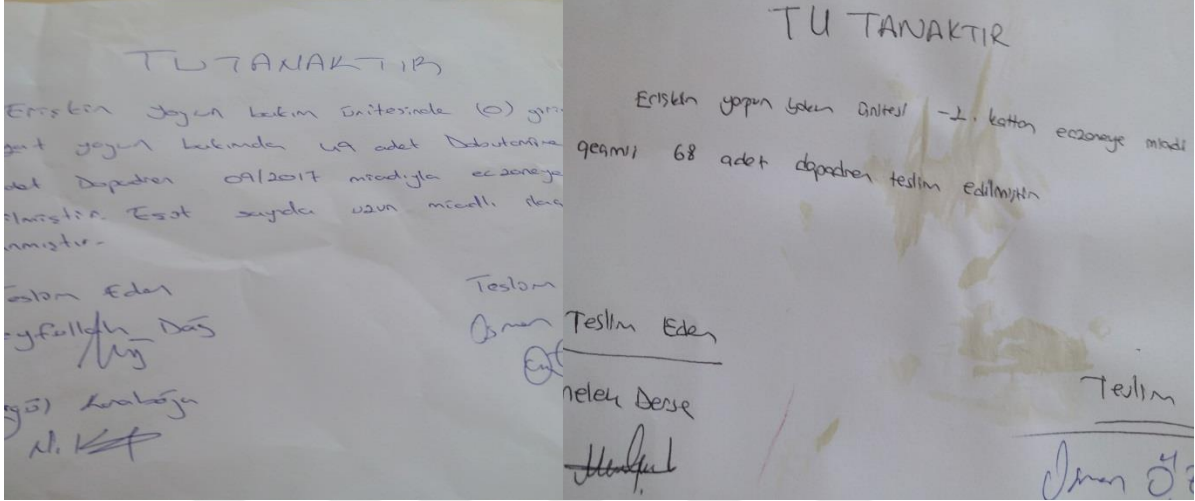 TUTANAKTIR
Erişkin yoğun bakım ünitesinde (0) giri
yoğun bakımda 49 adet Dobutamine
det Dopadren 09/2017 miadıyla eczaneye
ilmiştir. Eşit sayıda uzun miadlı ilaç
nmıştır.
eslim Eden
Teslim
eyfullah Dağ
Osman
gül Karaboğa
N. K
TUTANAKTIR
Erişkin yoğun bakım ünitesi -1. kattan eczaneye miadı
geçmiş 68 adet dopadren teslim edilmiştir
Teslim Eden
melek Derse
Teslim
Osman Ö